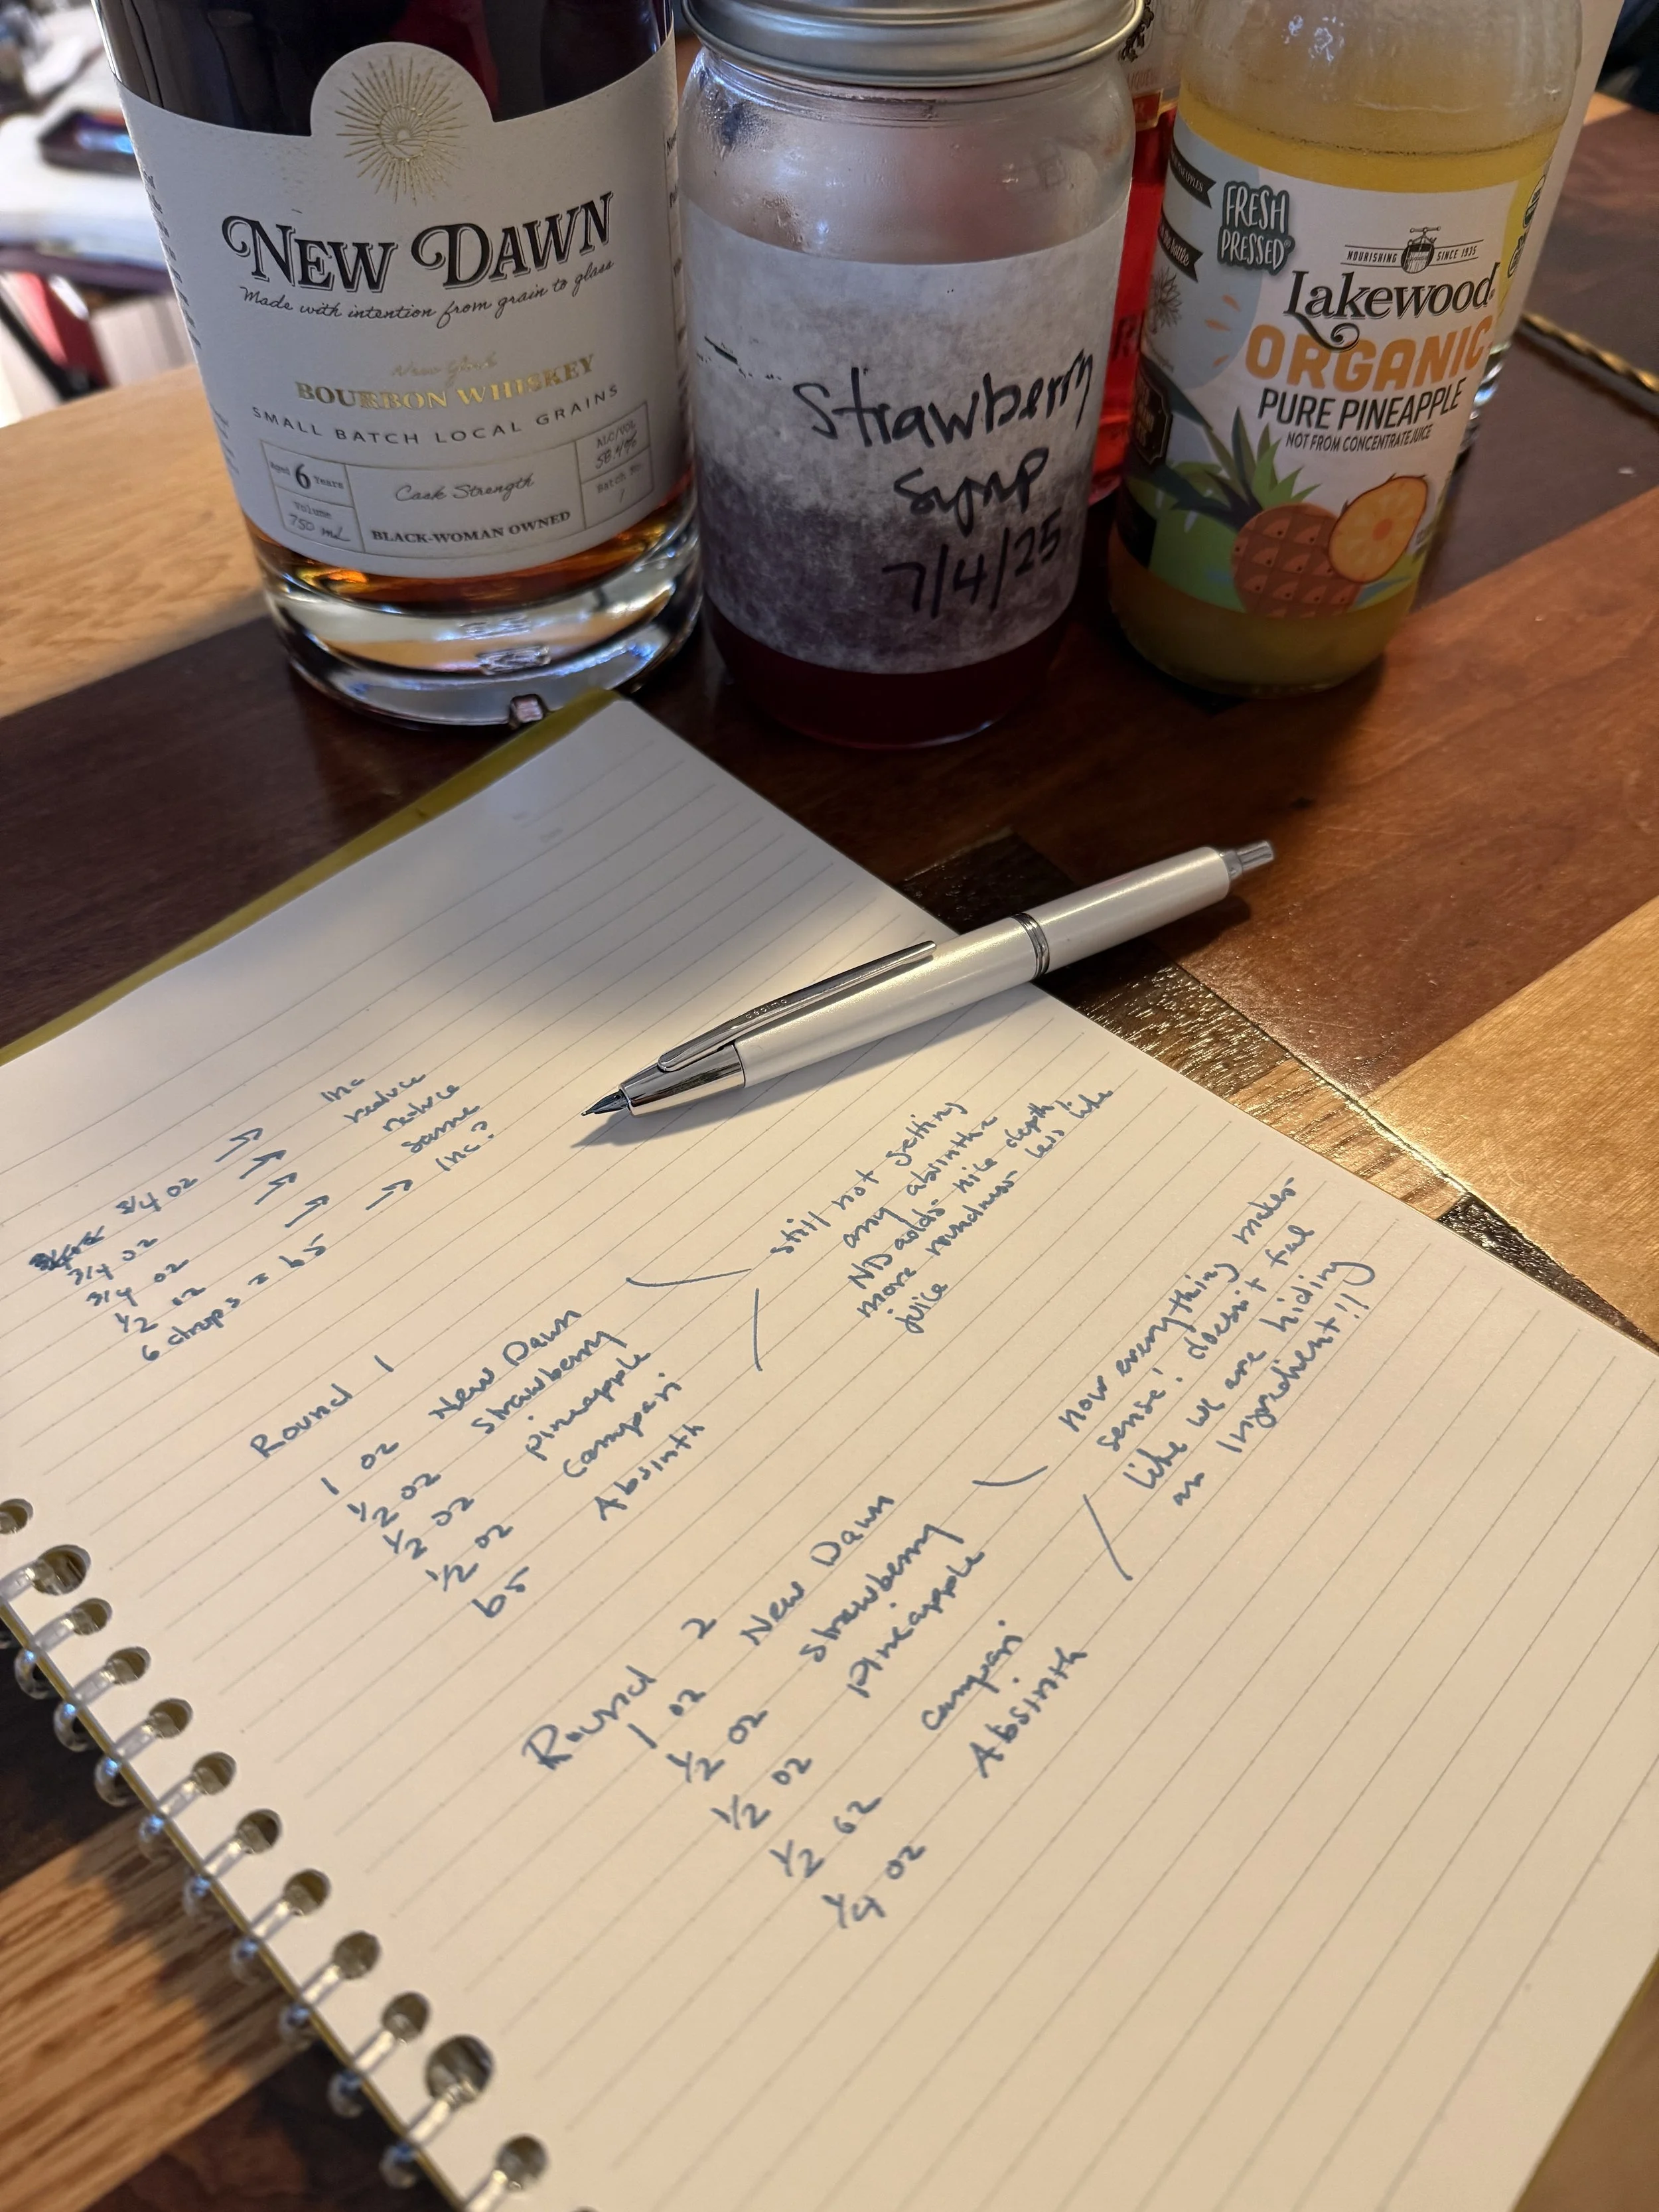 NEW DAWN
Made with intention from grain to glass
New York
BOURBON WHISKEY
SMALL BATCH LOCAL GRAINS
Aged 6 Years
Volume
750 mL
Cask Strength
BLACK-WOMAN OWNED
ALC/VOL
Batch No.
1
Strawberry
Syrup
7/4/25
FRESH
PRESSED
NOURISHING SINCE 1935
Lakewood
ORGANIC
PURE PINEAPPLE
NOT FROM CONCENTRATE JUICE
3/4 oz → inc
3/4 oz → reduce
3/4 oz → reduce
1/2 oz → same
6 drops = bs → inc?
Round 1
1 oz New Dawn
1/2 oz strawberry
1/2 oz pineapple
1/2 oz campari
bs Absinth
still not getting
any absinthe
ND adds nice depth,
more roundness less like
juice
Round 2
1 oz New Dawn
1/2 oz strawberry
1/2 oz pineapple
1/2 oz campari
1/4 oz Absinth
now everything makes
sense! doesn't feel
like we are hiding
an ingredient!!